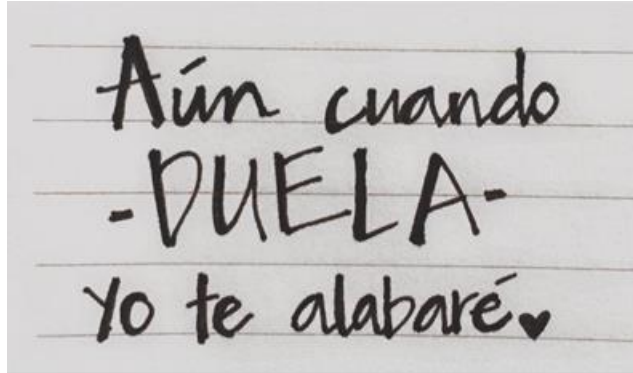 Aún cuando
-DUELA-
yo te alabaré♥